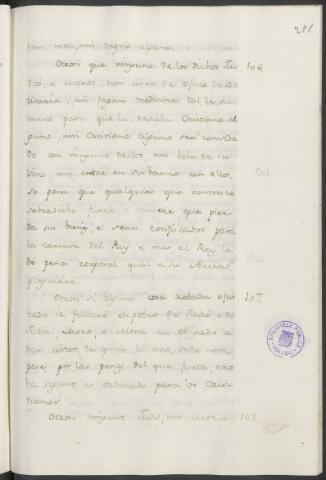 291
tan mal, nin dapno alpuno.
Otrosi que ninpuno de los dichos Ju 106
dios, e Moros non usen de oficio de bo
ticaria; nin fapan medicina tal de su
mano para que la reciba Cristiano al
puno, nin Cristiano alpuno sea convida
do con ninpuno dellos nin beba de su
vino, nin entre en su banno con ellos,
so pena que qualquier que contra lo
sobredicho fuere, o viniere que pier
da sus bienes, e sean confiscados para
la camara del Rey, e mas el Rey le
dé pena corporal qual a su Alteza
ploguiere.
Otrosi si alpuna cosa robada o fur 107.
tada se fallare en poder de Judio, o de
Judia Moro, o Mora sea oblipado a
dar autor de quien la
pese por las penas del que furta, o ro
ba sepunt es ordenado para los Cris
tianos.
Otrosi ninpunt Judio, nin Moro 108.
BIBLIOTECA PUBLICA
TOLEDO